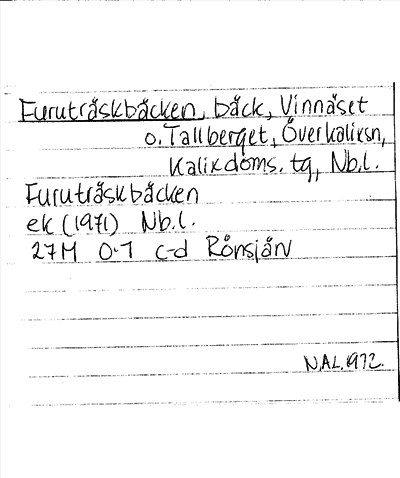 Furuträskbäcken, bäck, Vinnäset
o. Tallberget, Överkalixsn,
Kalixdoms. tg, Nb.l.
Furuträskbäcken
ek (1971) Nb.l.
27M 0-1 c-d Rönsjän
NAL. 1972.